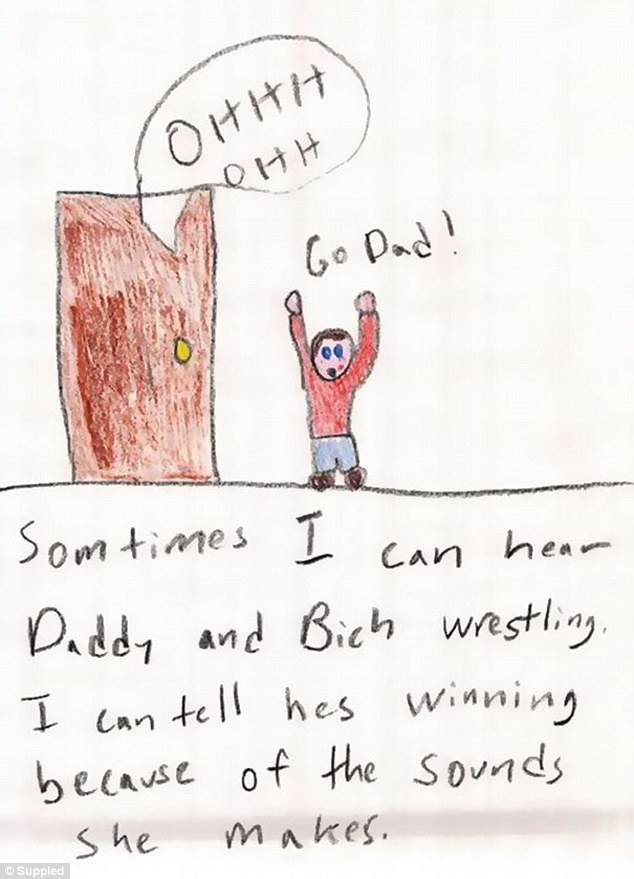 OHHH
OHH
Go Dad!
Somtimes I can hear
Daddy and Bich wrestling.
I can tell hes winning
because of the sounds
she makes.
© Suppled